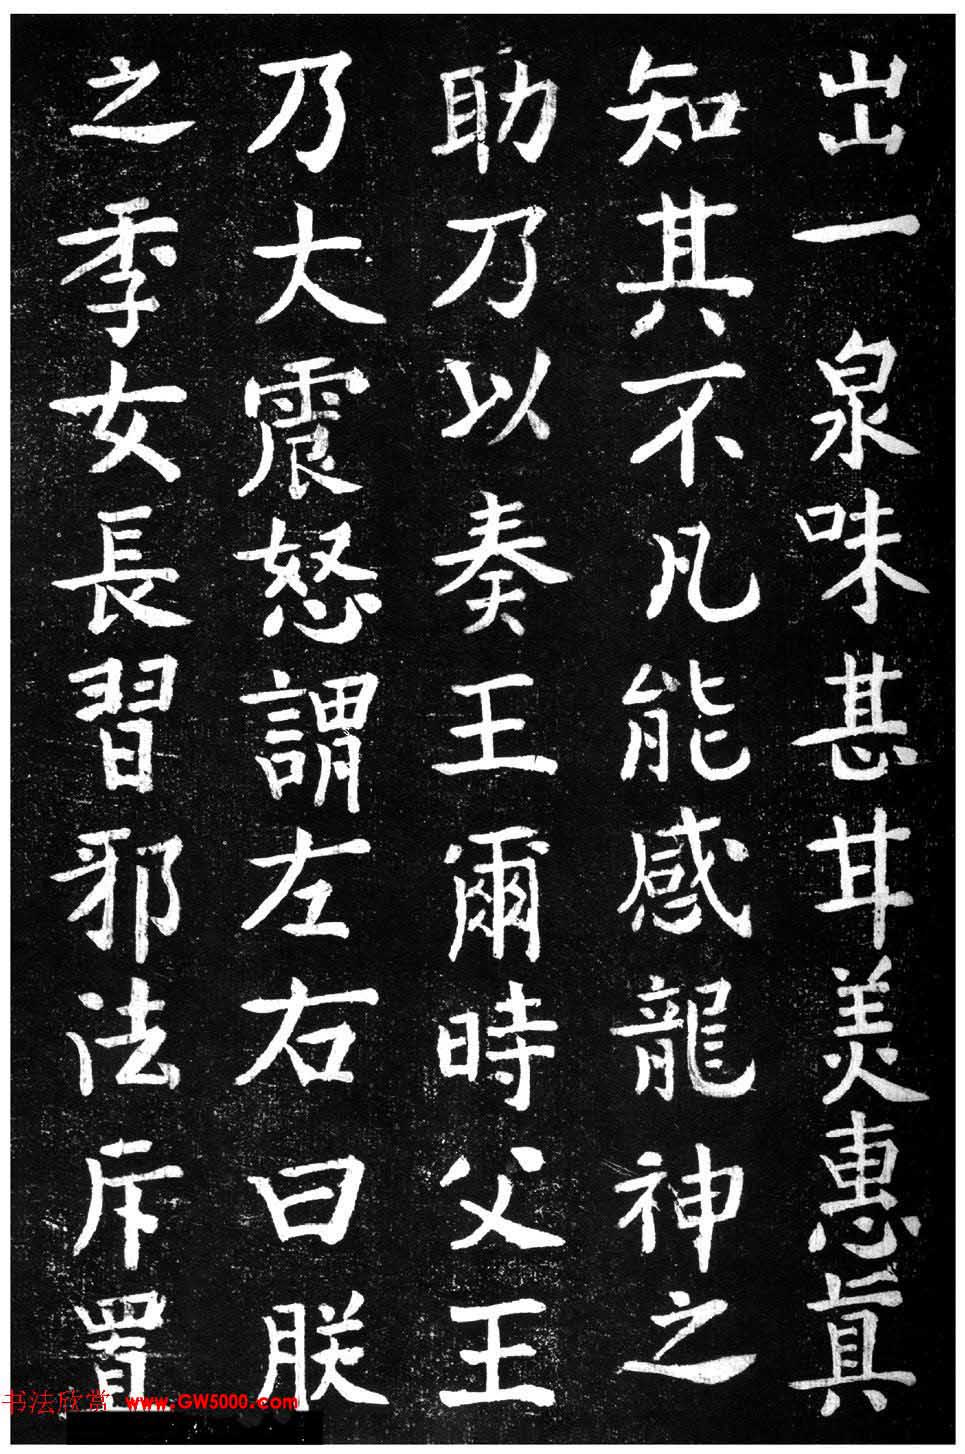 出一泉味甚甘美惠真
知其不凡能感龍神之
助乃以奏王爾時父王
乃大震怒謂左右曰朕
之季女長習邪法斥置
书法欣赏 www.GW5000.com